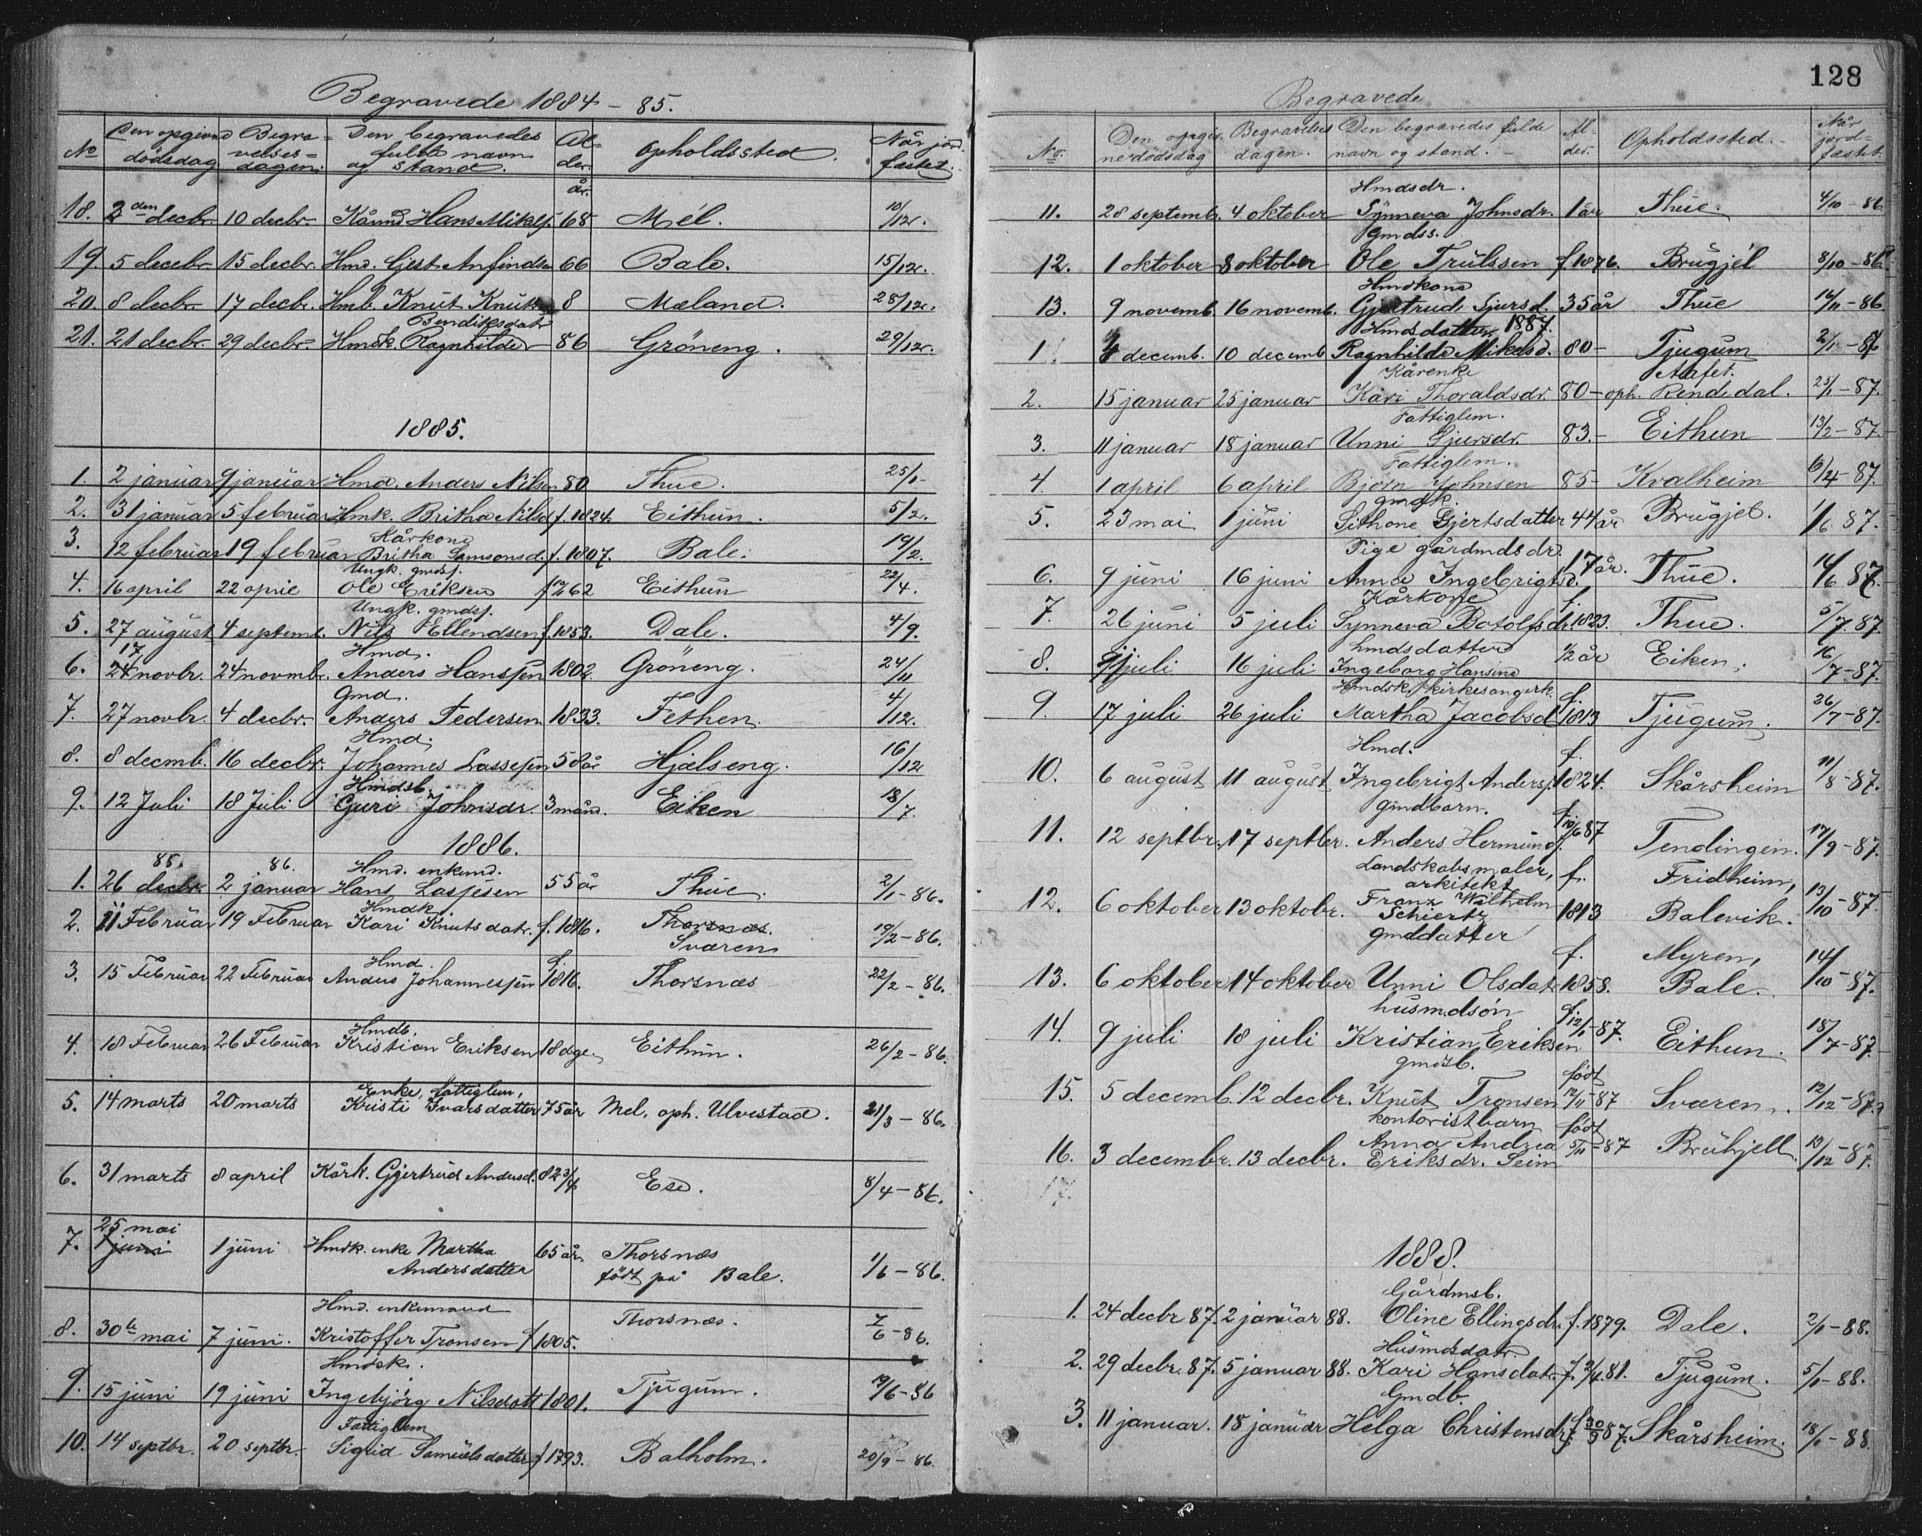 Begravede 1884 - 85.
No Den opgivne dödsdag Begravelsesdagen Den begravedes fulde navn og stand. Alder. Opholdssted. Når jordfæstet.
år.
18. 2den decbr. 10 decbr. Kårmd Hans Mikelsj. 68 Mél. 10/12.
19 5 decebr 15 decbr. Hmd. Gjest Anfindsen 66 Bale. 15/12.
20. 8 decbr. 17 decbr. Hmb. Knut Knuts 8 Mæland. 28/12.
Bendiksdatr
21. 21 decbr. 29 decbr. Hmdk. Ragnhilde 86 Gröneng. 29/12.
1885.
1. 2 januar 9 januar Hmd. Anders Nilsen 80 Thue. 25/1
2. 31 januar 5 februar Hmk. Britha Nilsd. f. 1824. Eithun. 5/2.
Kårkone
3. 12 februar 19 februar Britha Samsonsd. f. 1807. Bale. 19/2.
Ungk. gmdsj.
4. 16 april 22 april Ole Eriksen 62 Eithun 22/4.
Ungk. gmdsj.
5. 27 august 4 septemb. Nils Ellendsen f. 1853. Dale. 4/9.
17 Hmd.
6. 24 novbr. 24 novmbr. Anders Hansjen 1802 Gröneng. 24/11
Gmd.
7. 27 novbr. 4 decbr. Anders Pedersen 1833. Fethen. 4/12.
Hmd.
8. 8 decmb. 16 decbr. Johannes Lassesen 58 år Hjælseng. 16/12
Hmdsb.
9. 12 Juli 18 Juli Guri Johnsdr. 3 månd. Eiken 18/7.
1886.
85. 86. Hmd. enkemd.
1. 26 decbr. 2 januar Hans Lasjesen 55 år Thue. 2/1 - 86.
Hmdk.
2. 11 Februar 19 Februar Kari Knutsdatr. f. 1816. Thorsnæs. 19/2 - 86.
Sværen
Hmd. f.
3. 15 Februar 22 Februar Anders Johannesjen 1816. Thorsnæs 22/2 - 86.
Hmdb.
4. 18 Februar 26 Februar Kristian Eriksen 18 dge. Eithun. 26/2 - 86.
Enke, fattiglem,
5. 14 marts 20 marts Kristi Ivarsdatter 75 år Mel, oph. Ulvestad. 21/3 - 86.
6. 31 marts 8 april Kårk. Gjertrud Andersd. 82 3/4 Ese. 8/4 - 86.
25 mai
7. 1 juni 1 juni Hmdk. enke Martha 65 år Thorsnæs 1/6 - 86.
Andersdatter født på Bale.
Hmd. enkemand
8. 30te mai 7 juni. Kristoffer Tronsen f 1805. Thorsnæs. 7/6 - 86.
Hmdsk.
9. 15 juni 19 juni Ingebjörg Nilsdatt 1801. Tjugum. 19/6 - 86
Fattiglem
10. 14 septbr. 20 septbr. Sigrid Samuelsdatter f 1793. Balholm. 20/9 - 86.
128
Begravede
No. Den opgivne dödsdag Begravelsesdagen. Den begravedes fulde navn og stand. Alder. Opholdssted. Når jordfæstet
Hmdsdr.
11. 28 septemb. 4 oktober Synneva Johnsdr. 1 år Thue. 4/10 - 86
Gmdss.
12. 1 oktober 8 oktober Ole Trulssen f 1876. Brugjél 8/10 - 86
Hmdkone
13. 9 novemb. 16 novemb. Gjertrud Sjursd. 35 år Thue 16/11 - 86
Hmdsdatter 1887.
1 4 decemb. 10 decemb Ragnhilde Mikelsd. 80 - Tjugum 2/1 - 86
Kårenke
2. 15 januar 25 januar Kari Thoraldsdr. 80 - oph. Rendedal. 25/1 - 87.
Fattiglem.
3. 11 januar 18 januar Unni Sjursdr. 83. - Eithun 13/2 - 87.
Fattiglem.
4. 1 april 6 april Bjørn Johnsen 85 - Kvalheim 6/4 - 87.
gmdk.
5. 23 mai 1 juni Sithone Gjertsdatter 44 år Brugjel. 1/6 87.
Pige gårdmdsdr.
6. 9 juni 16 juni Anna Ingebrigtsd. 17 år. Thue. 16/6 87.
Kårkone f.
7. 26 juni 5 juli Synneva Botolfsdr. 1823. Thue. 5/7. 87.
hmdsdatter
8. 9 juli 16 juli Ingeborg Hansine 1/2 år Eiken. 16/7 - 87.
Hmdsk. kirkesangerk. f.
9. 17 juli 26 juli Martha Jacobsd. 1813 Tjugum. 26/7 - 87.
Hmd. f.
10. 6 august 11 august Ingebrigt Andersj. 1824. Skårsheim 11/8 - 87.
gmdbarn.
11. 12 septbr. 17 septber. Anders Hermunds. 87 Tendingen. 17/9 - 87.
Landskabsmaler, f. Fridheim,
arkitekt
12. 6 oktober 13 oktobr. Franz Wilhelm 1813 Balevik. 13/10 - 87
Schiertz
gmddatter f. Myren,
13. 6 oktober 14 oktober Unni Olsdatr. 1858. Bale. 14/10 - 87.
husmdsön
14. 9 juli 18 juli Kristian Eriksen f. 12/1 - 87. Eithun. 18/7 - 87.
gmdsb. født
15. 5 decemb. 12 decbr. Knut Tronsen 12/11 - 87 Sværen. 12/12 - 87.
kontoristbarn født
16. 3 decembr. 13 decbr. Anna Andrea 5/11 - 87 Bruhjell. 13/12 - 87.
Eriksdr. Seim
17.
1888.
Gårdmsb.
1. 24 decbr 87. 2 januar 88. Oline Ellingsdr. f. 1879. Dale. 2/1 - 88.
Husmdsdatr.
2. 29 decbr. 87. 5 januar 88. Kari Hansdatr. f. 2/4 81. Tjugum. 5/1 - 88.
Gmdb.
3. 11 januar. 18 januar Helga Christensdr. f. 30/5 87. Skårsheim. 18/1 - 88.